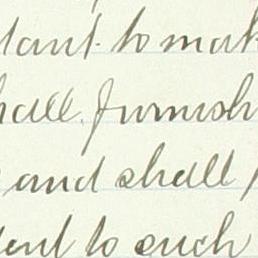 tant to mak
hall furnish
and shall
dent to such